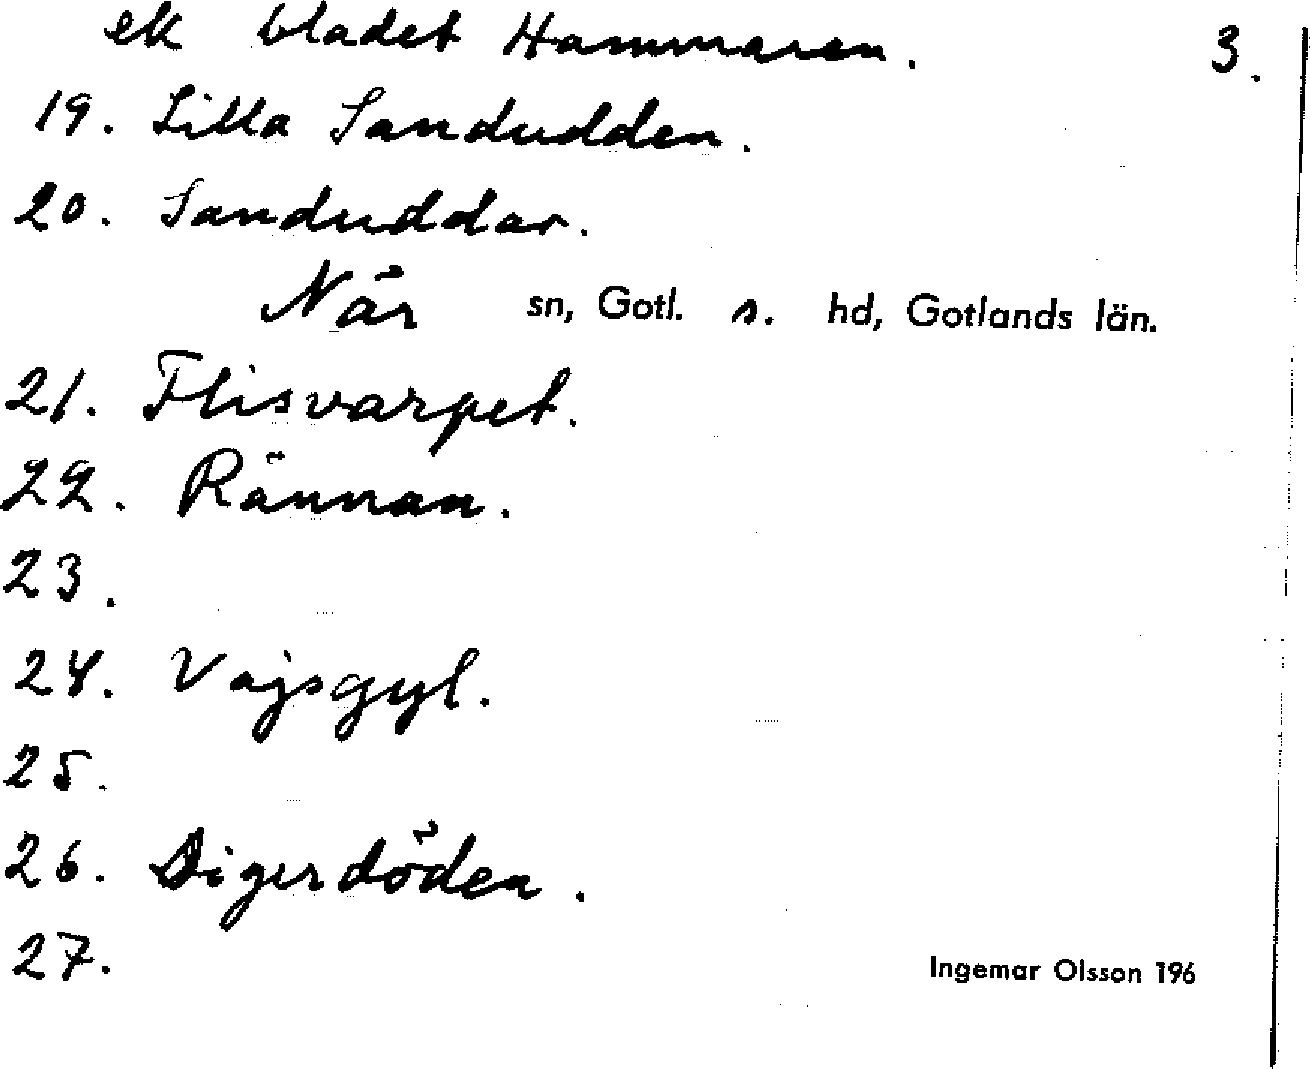 ek bladet Hammaren. 3.
19. Lilla Sandudden.
20. Sanduddar.
När sn, Gotl. s. hd, Gotlands län.
21. Flisvarpet.
22. Rännan.
23.
24. Vajsgyl.
25.
26. Digerdöden.
27.
Ingemar Olsson 196